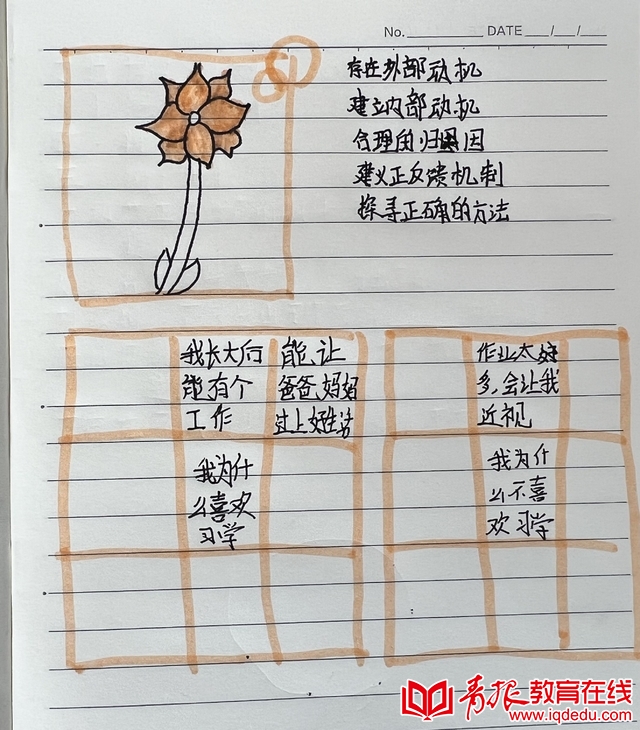 No. DATE / /
存在外部动机
建立内部动机
合理的归因
建义正反馈机制
探寻正确的方法
我长大后
能有个
工作
能让
爸爸,妈妈
过上好生活
我为什
么喜欢
习学
作业太
多,会让我
近视
我为什
么不喜
欢习学
青报教育在线
www.iqdedu.com